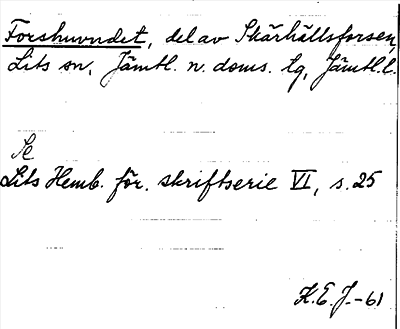 Forshuvudet, del av Skärhällsforsen,
Lits sn, Jämtl. n. doms. tg, Jämtl. l.
Se
Lits Hemb. för. skriftserie VI, s. 25
K.E.J.-61